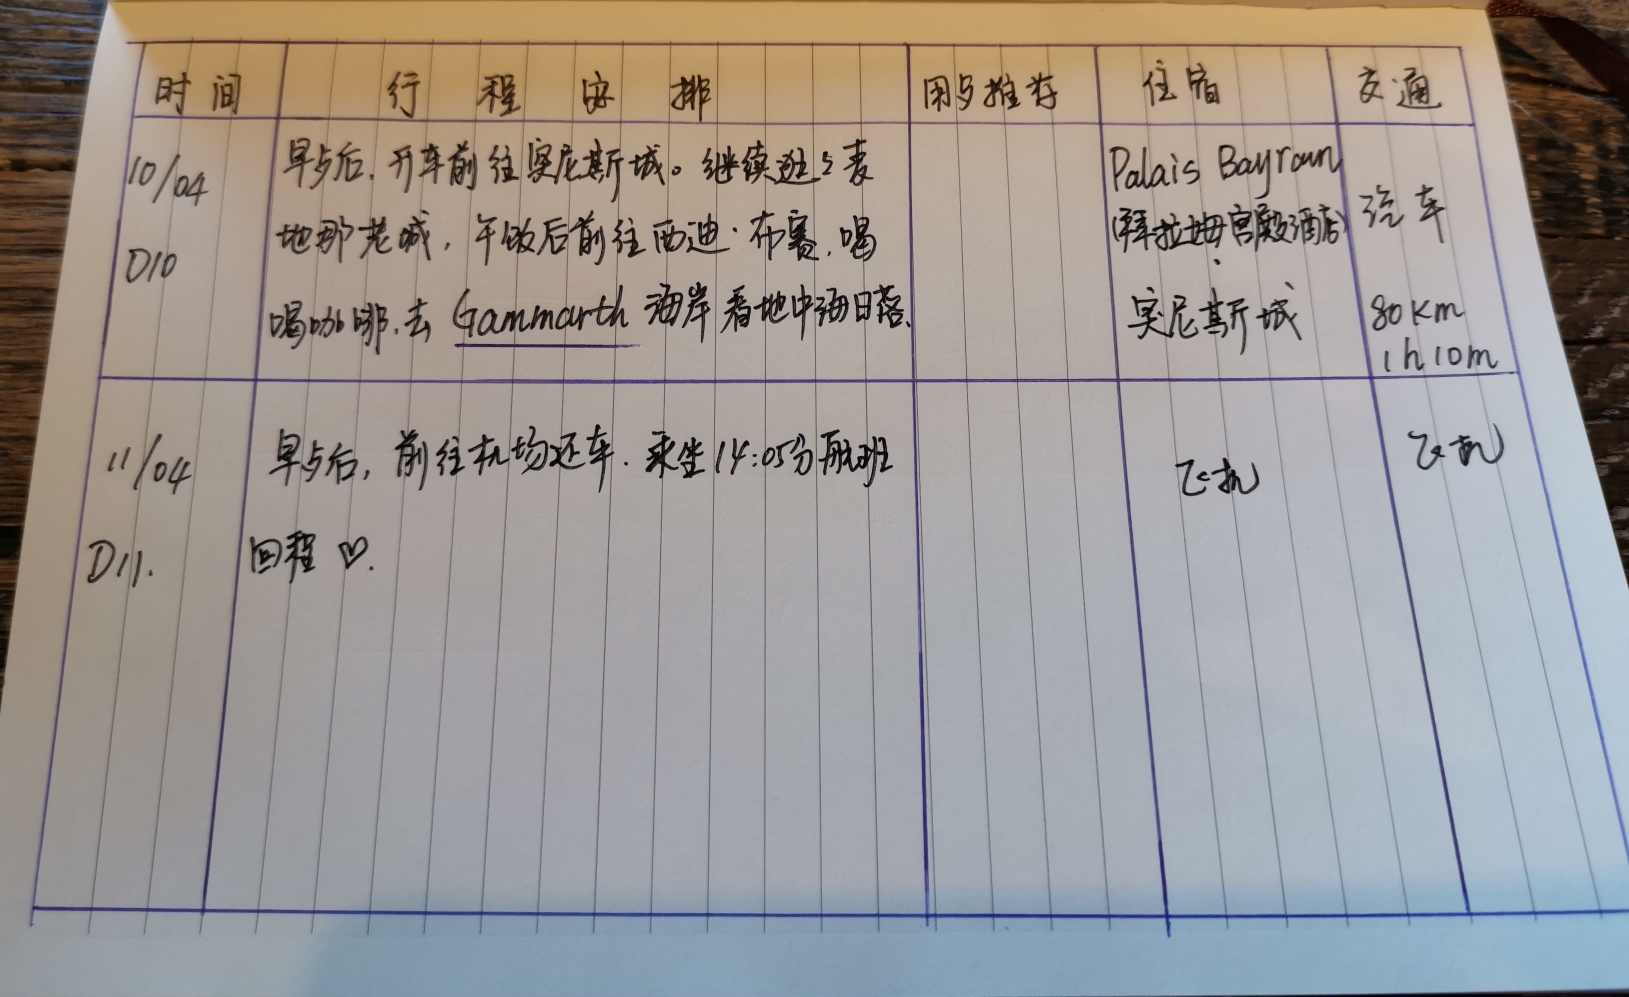 时间 行程安排 用歺推荐 住宿 交通
10/04
D10
早点后，开车前往突尼斯城。继续逛逛麦
地那老城，午饭后前往西迪·布赛，喝
喝咖啡，去 Gammarth 海岸看地中海日落。
Palais Bayram
(拜拉姆宫殿酒店)
突尼斯城
汽车
80km
1h10m
11/04
D11.
早点后，前往机场还车．乘坐14:05分航班
回程 ♡.
飞机
飞机